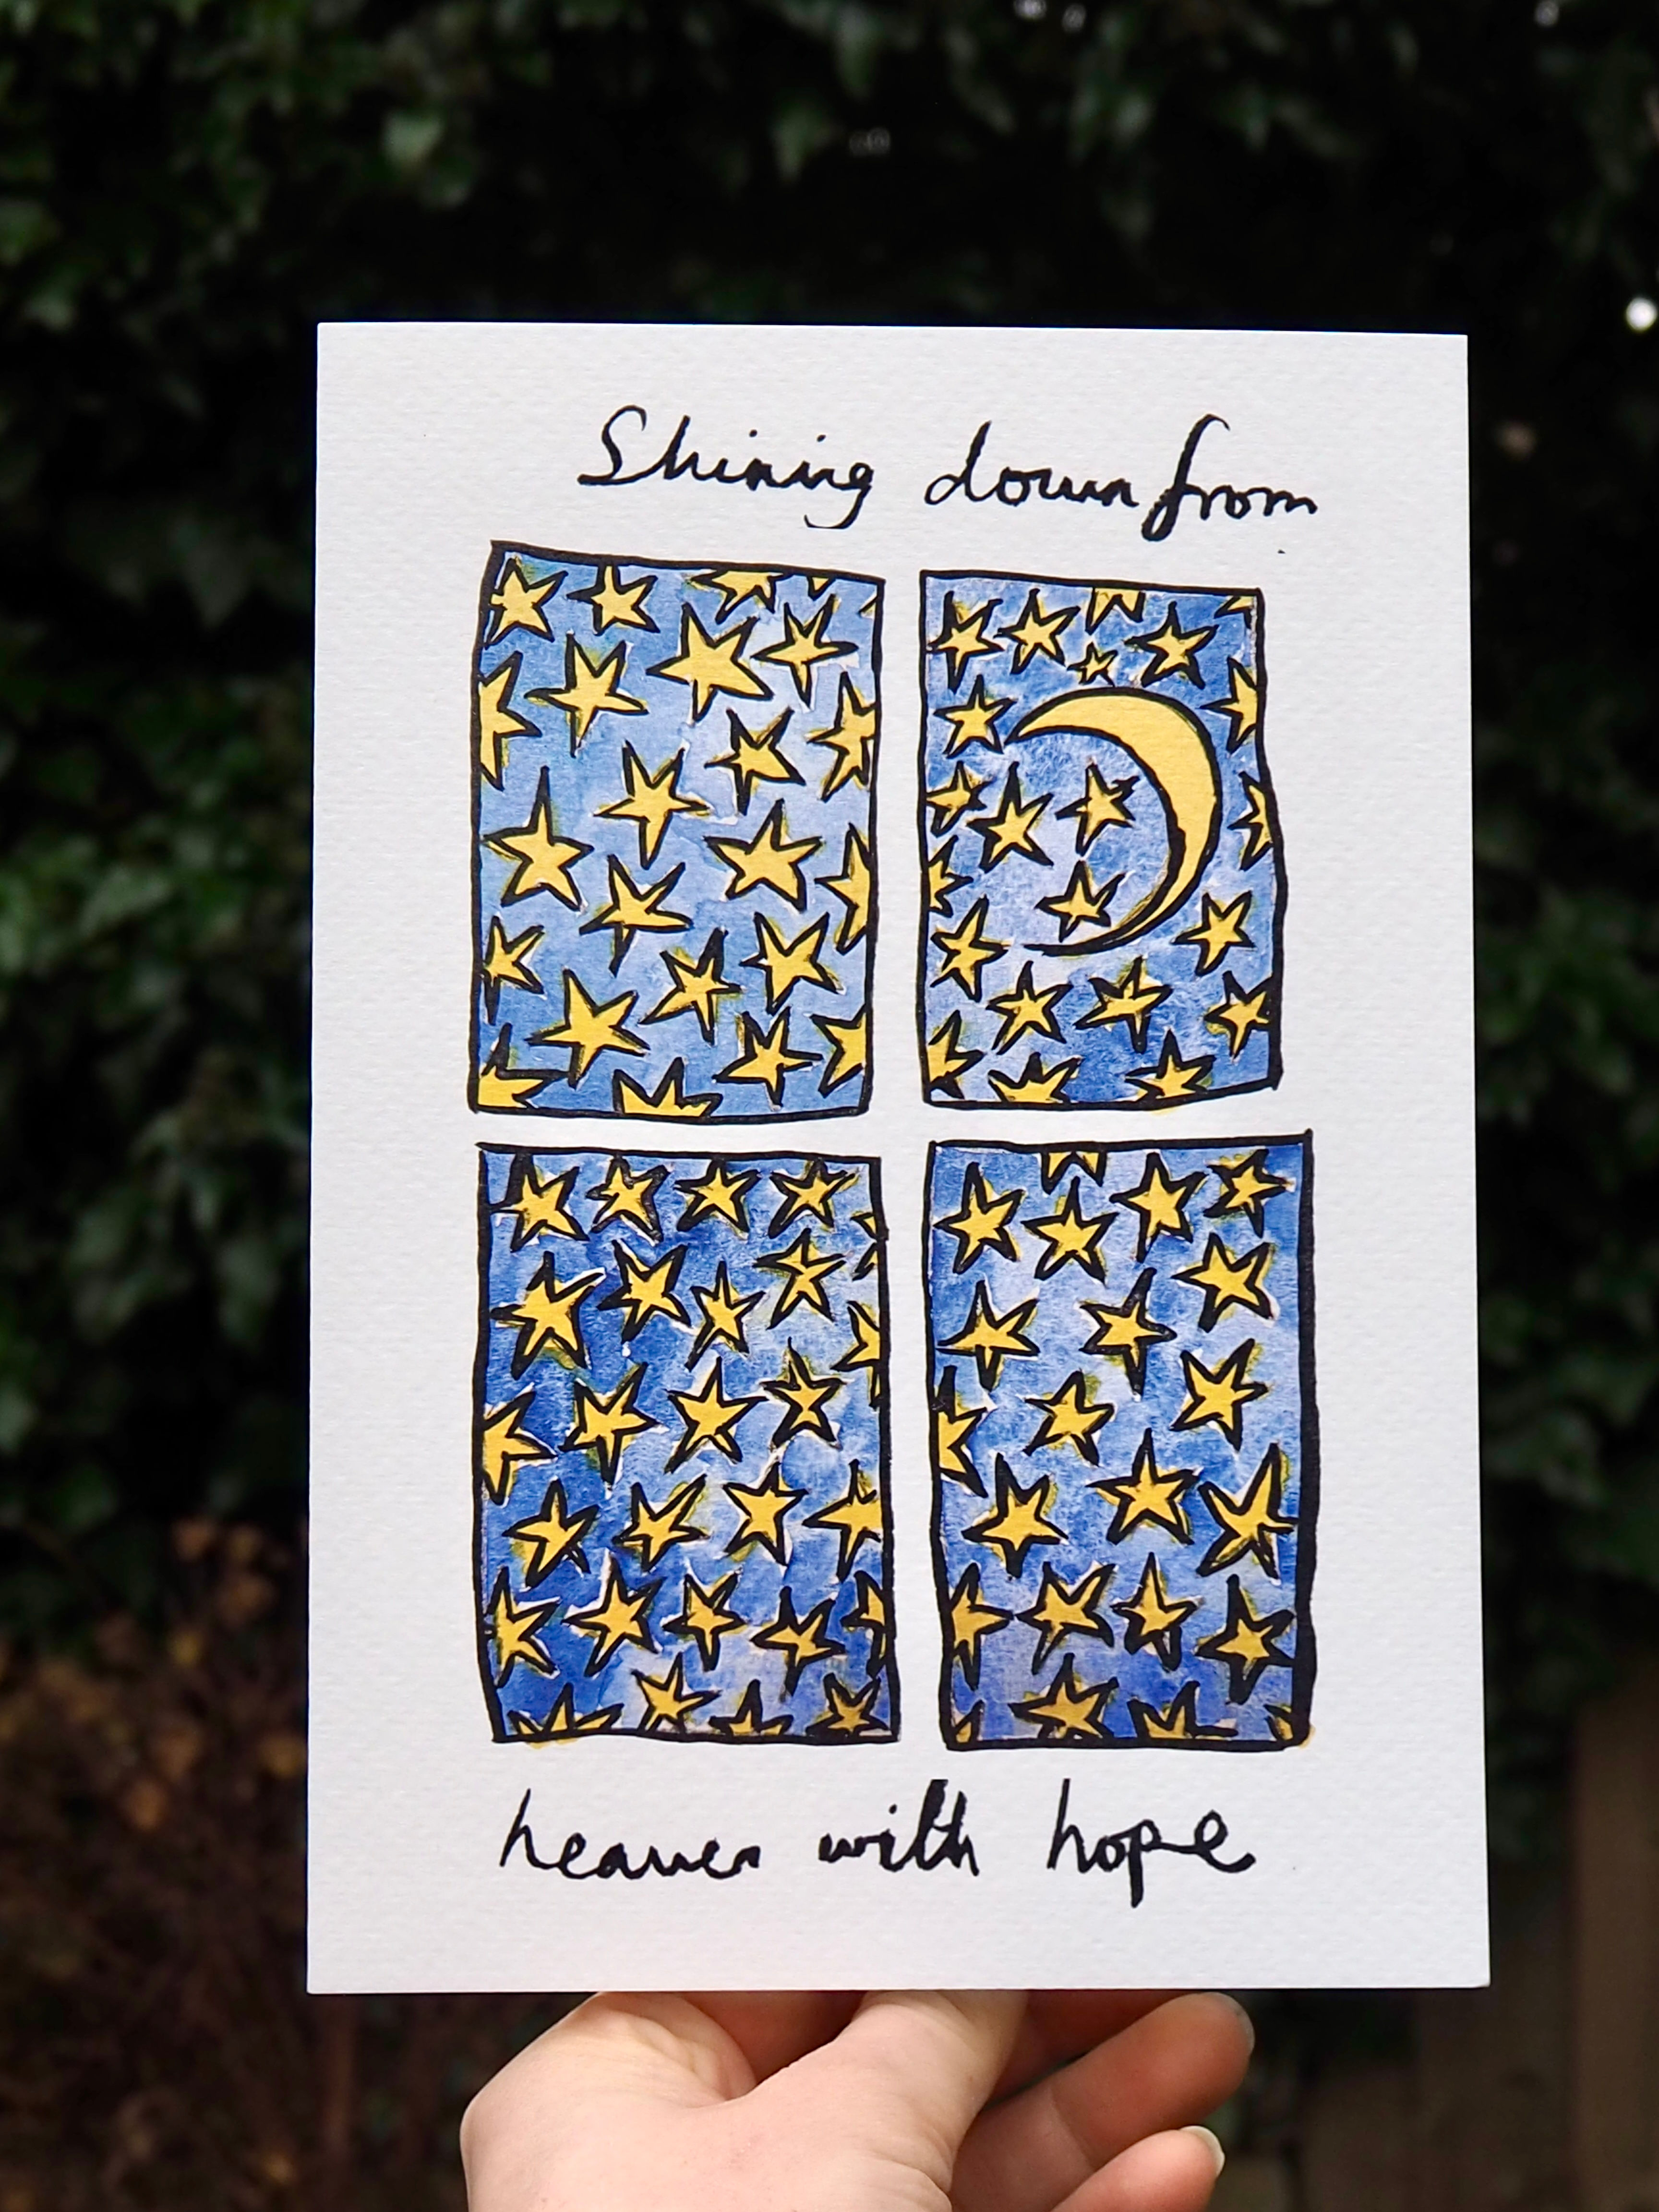 Shining down from
heaven with hope